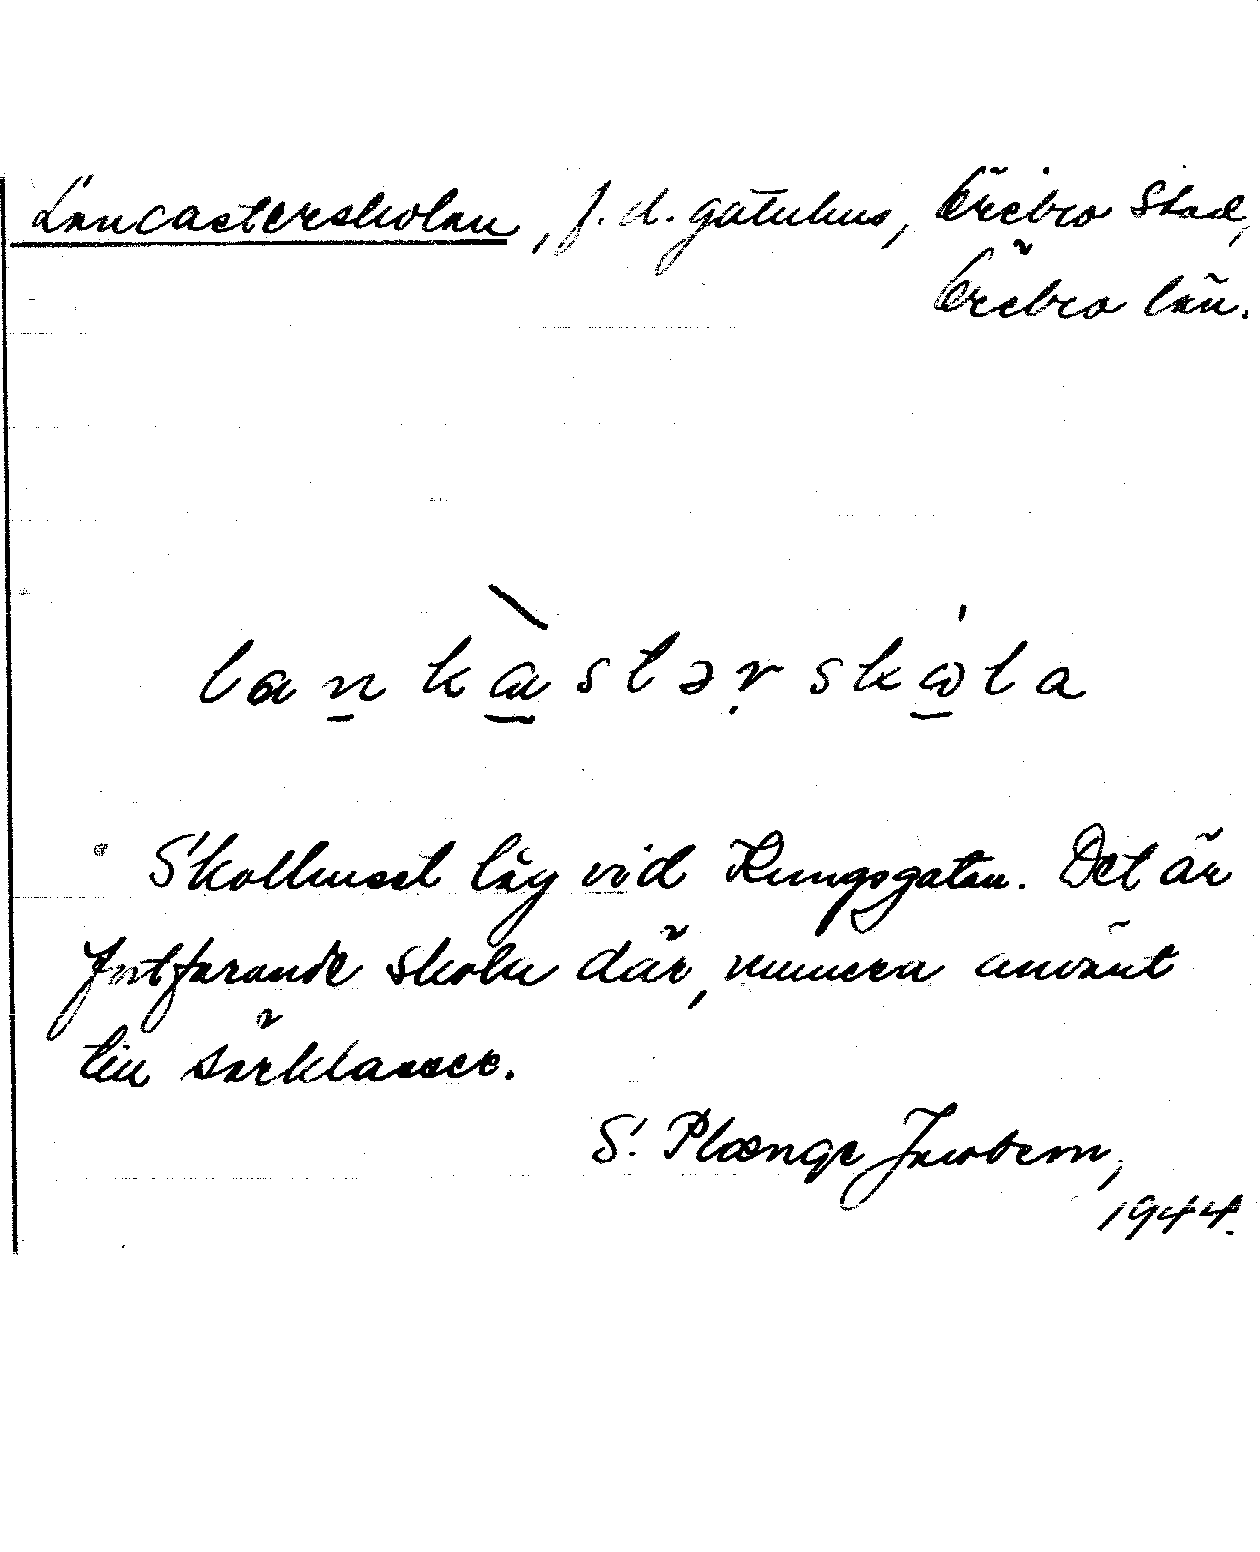 Lancasterskolan, f. d. gatuhus, Örebro Stad,
Örebro län.
lankàstərskω̇la
Skolhuset låg vid Kungsgatan. Det är
fortfarande skola där, numera använt
till särklasser.
S. Plænge Jacobson,
1944.